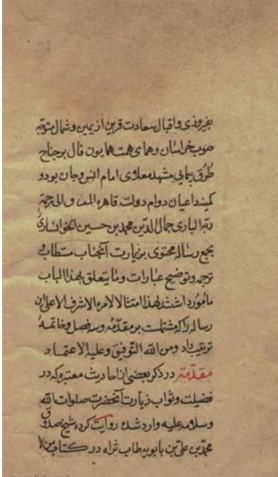 بفیروزی واقبال سعادت قرین از یمین وشمال متوجه
صوب خراسان وهمای همت همایون فال بر جناح
طوف مشهد معلای امام انس وجان بود و
کمینه داعیان دوام دولت قاهره
ربه الباری جمال الدین محمد بن حسین الخوانساری
بجمع رساله محتوی بر زیارت آنجناب مستطاب
ترجمه وتوضیح عبارات وما یتعلق بهذا الباب
مأمور داشتند لهذا امتثالا لامره الاشرف الاعلی این
رساله را که مشتملست بر مقدمه وسه فصل وخاتمه
ترتیب داد ومن الله التوفیق وعلیه الاعتماد
مقدمه در ذکر بعضی از احادیث معتبره که در
فضیلت وثواب زیارت آنحضرت صلوات الله
وسلامه علیه وارد شده روایت کرده شیخ صدوق
محمد بن علی بن بابویه طاب ثراه در کتاب من لا